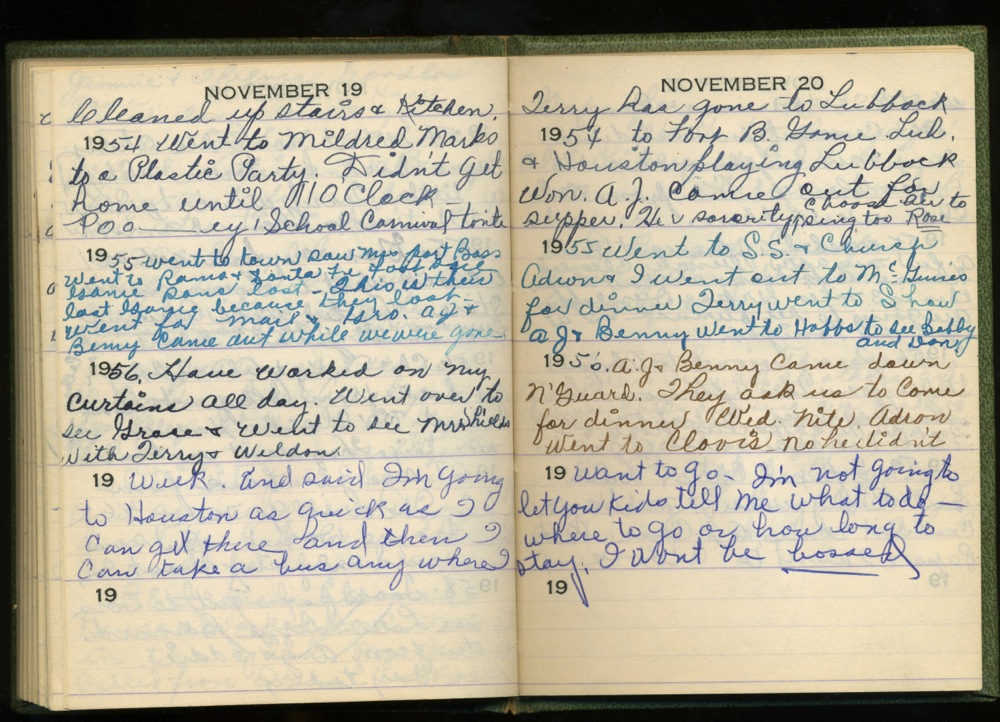 NOVEMBER 19
Cleaned up stairs & Kitchen.
1954 Went to Mildred Marks
to a Plastic Party. Didn't get
home until 11 O Clock
Poo— ey! School Carnival tonite
1955 went to town saw Mrs.
Went to Rama & Santa Fe Foot Ball
Game Rams Lost - This is their
last Game because they lost -
Went for mail & Gro. A.J. &
Benny Came out while we were gone
1956. Have worked on my
Curtains all day. Went over to
see Grace & Went to see Mrs Shields
With Terry & Weldon
19 Week. And said I'm going
to Houston as quick as I
can get there and then I
can take a bus any where I
19
NOVEMBER 20
Terry has gone to Lubbock
1954 to Foot B. Game Lub.
& Houston playing Lubbock
Won. A.J. came out for
supper. His sorority choose her to
ping too Rose
1955 Went to S.S. & Church
Adron & I went out to
for dinner Terry went to Show
A.J. & Benny went to Hobbs to see Bobby
and Don
1956. A.J. & Benny came down
N'Guard. They ask us to come
for dinner Wed. Nite. Adron
Went to Clovis. No he didn't
19 want to go - I'm not going to
let you kids tell me what to do —
where to go or how long to
stay. I wont be bossed
19